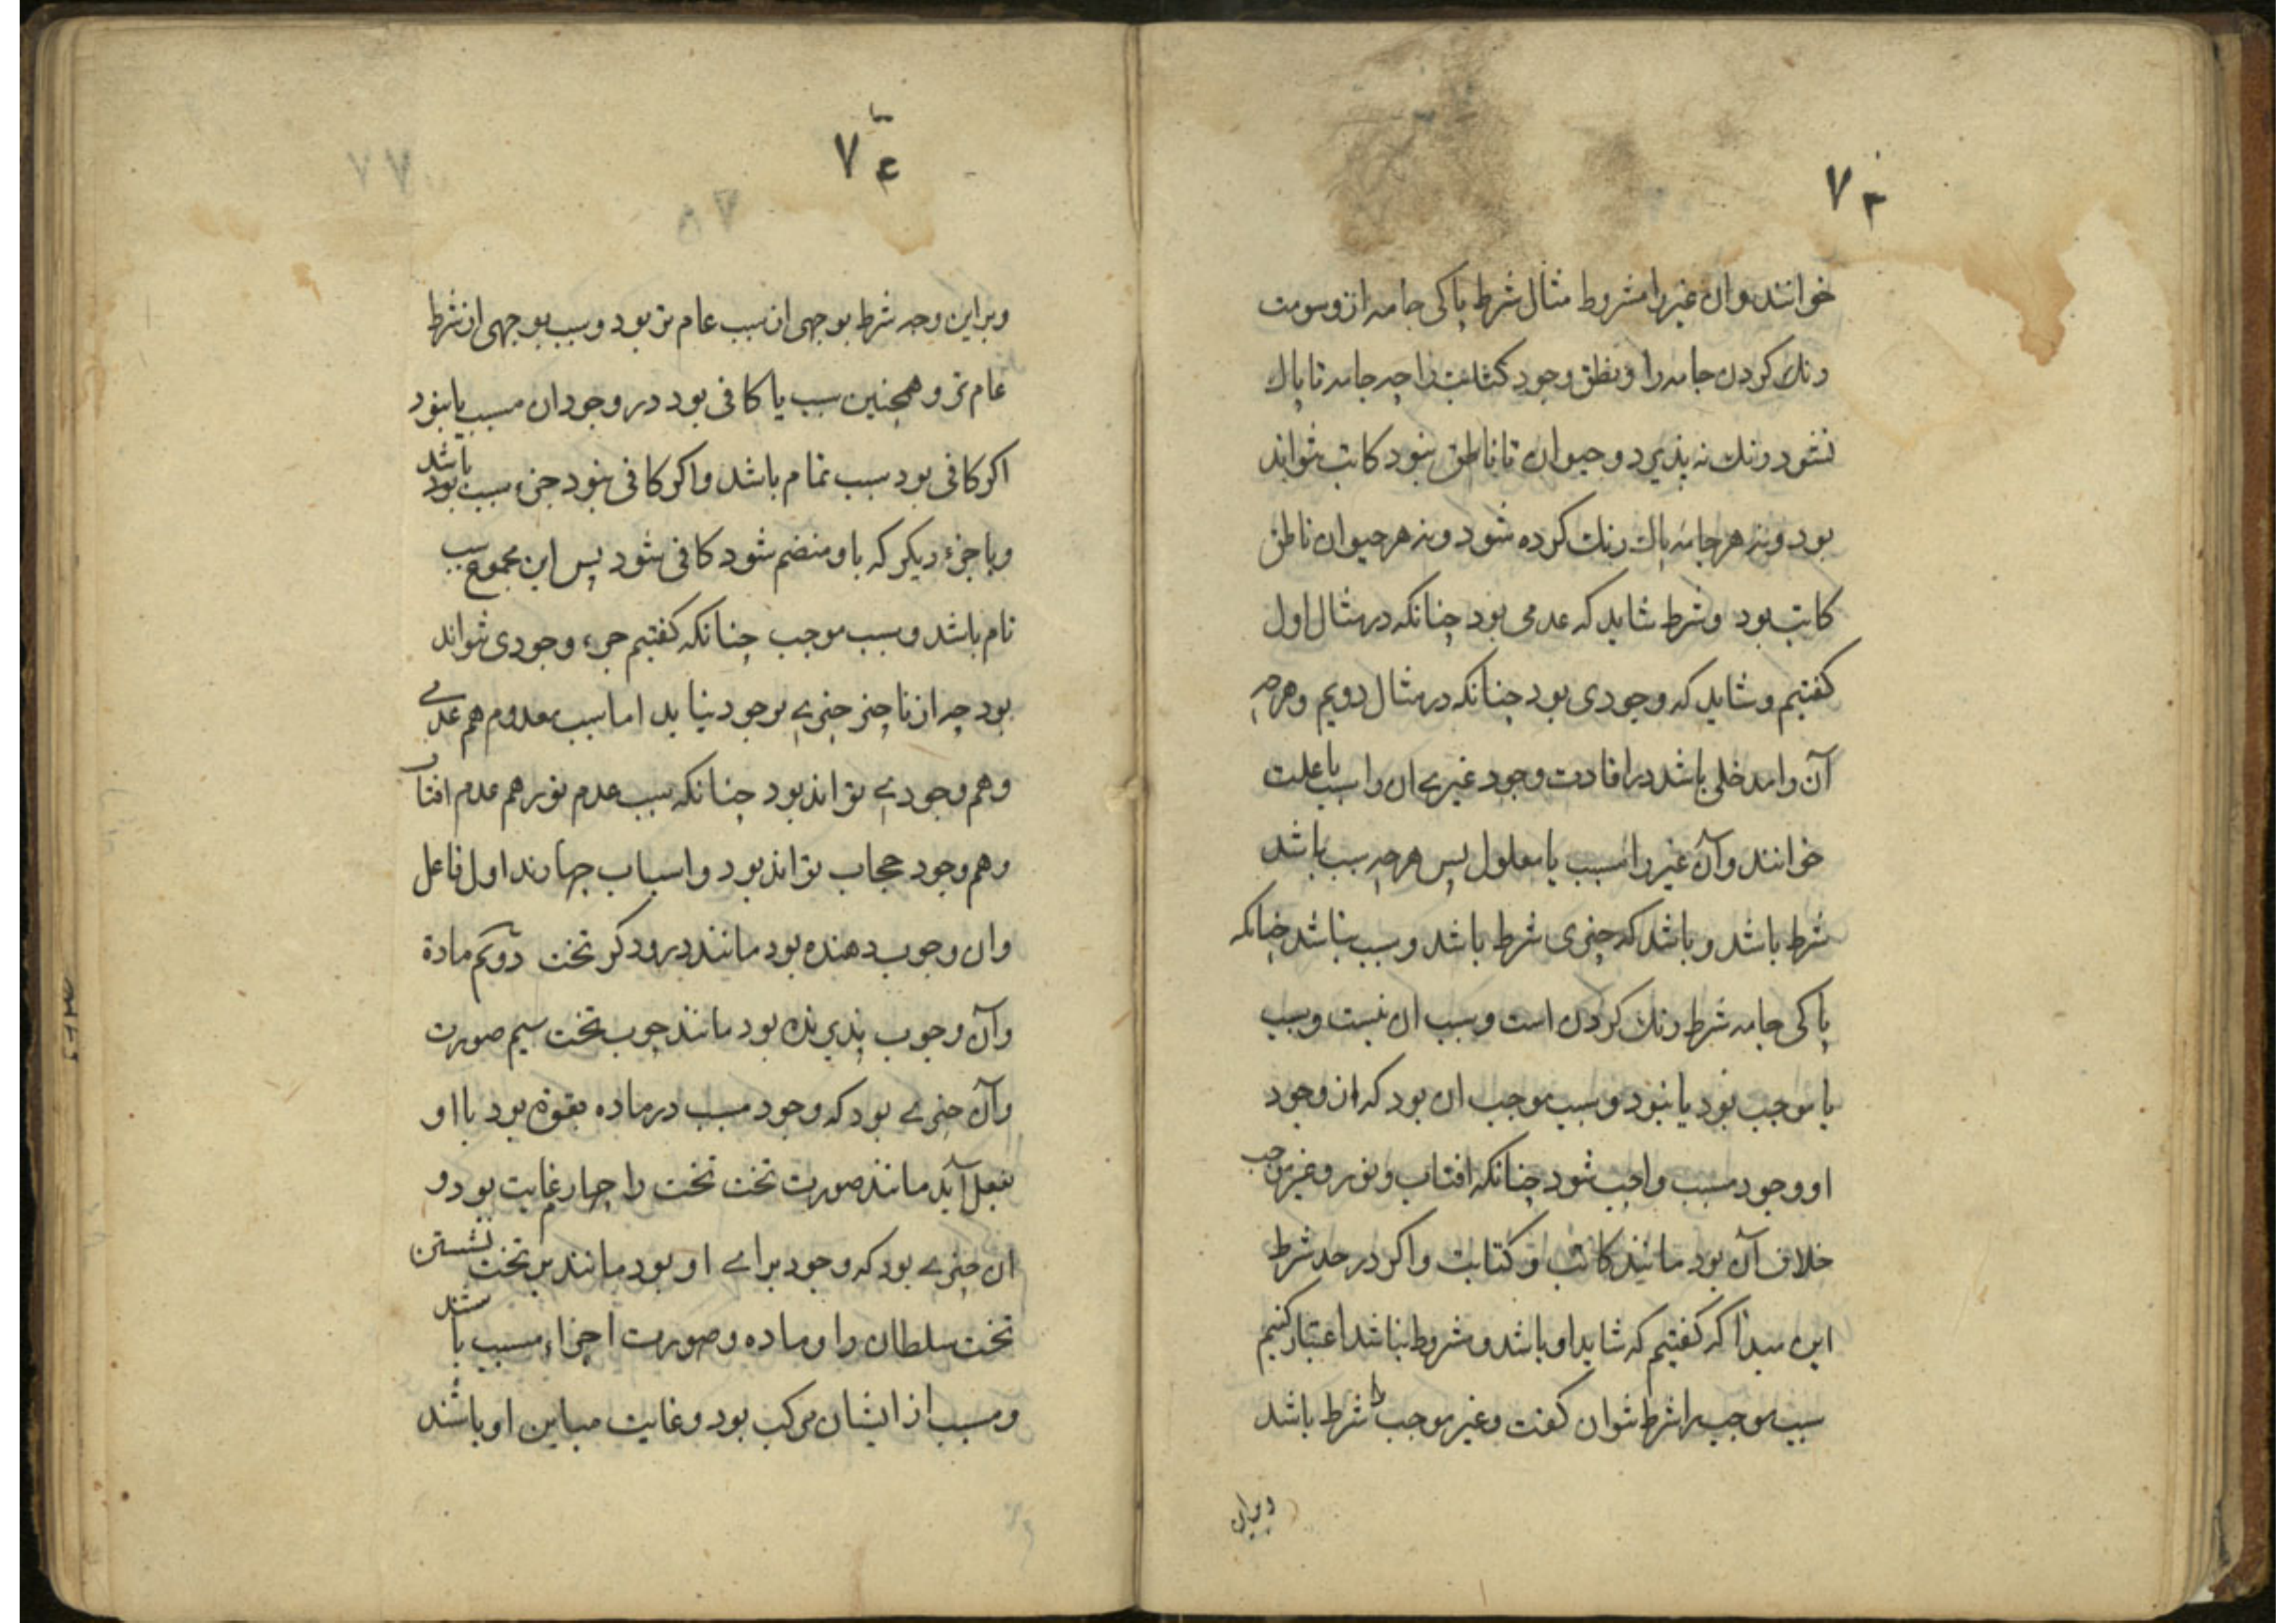 ٧٣
خوانند وان غیر را مشروط مثال شرط پاکی جامه از وسومت
رنك کردن جامه را و نطق وجود کتابت را چه جامه تا پاك
نشود رنك نه پذیرد و حیوان تا ناطق نبود کاتب نتواند
بود و نه هر جامهٔ پاك رنك کرده شود و نه هر حیوان ناطق
کاتب بود و شرط شاید که عدمی بود چنانکه در مثال اول
کفتیم و شاید که وجودی بود چنانکه در مثال دویم و هرچه
آن را مدخلی باشد در افادت وجود غیری ان را سبب یا علت
خوانند وآن غیر را مسبب یا معلول پس هرچه سبب باشد
شرط باشد و باشد که چیزی شرط باشد و سبب نباشد چنانکه
پاکی جامه شرط رنك کردن است و سبب ان نیست و سبب
یا موجب بود یا نبود و سبب موجب ان بود که از وجود
او وجود مسبب واجب شود چنانکه افتاب و نور و غیر موجب
خلاف آن بود مانند کاتب و کتابت و اکر در حد شرط
این مبدا که کفتیم که شاید او باشد و مشروط نباشد اعتبار کنیم
سبب موجب را شرط نتوان کفت و غیر موجب شرط باشد
وبراین
٧٤
وبراین وجه شرط بوجهی از سبب عام تر بود و سبب بوجهی از شرط
عام تر و همچنین سبب یا کافی بود در وجود ان مسبب یا نبود
اکر کافی بود سبب تمام باشد واکر کافی نبود جزء سبب بود باشد
وبا جزء دیکر که باو منضم شود کافی شود پس این مجموع سبب
تام باشد و سبب موجب چنانکه کفتیم جزء وجودی نتواند
بود چه از ناچیز چیزی بوجود نیاید اما سبب معدوم هم عدمی
وهم وجودی تواند بود چنانکه سبب عدم نور هم عدم افتاب
وهم وجود حجاب تواند بود واسباب چهارند اول فاعل
وان وجوب دهنده بود مانند درودکر تخت دویم مادة
وآن وجوب پذیرنده بود مانند چوب تخت سیم صورت
وآن چیزی بود که وجود مسبب در ماده بقوة بود با او
بفعل آید مانند صورت تخت تخت را چهارم غایت بود و
ان چیزی بود که وجود برای او بود مانند بر تخت نشستن
تخت سلطان را و ماده و صورت اجزاء مسبب باشند
ومسبب از ایشان مرکب بود و غایت مباین او باشند